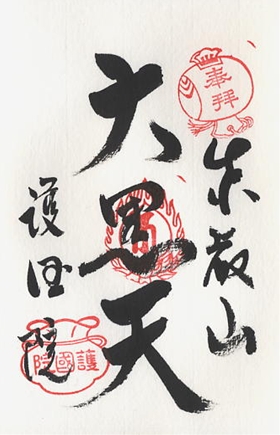 奉拝
東叡山
大黒天
護国院
護國院